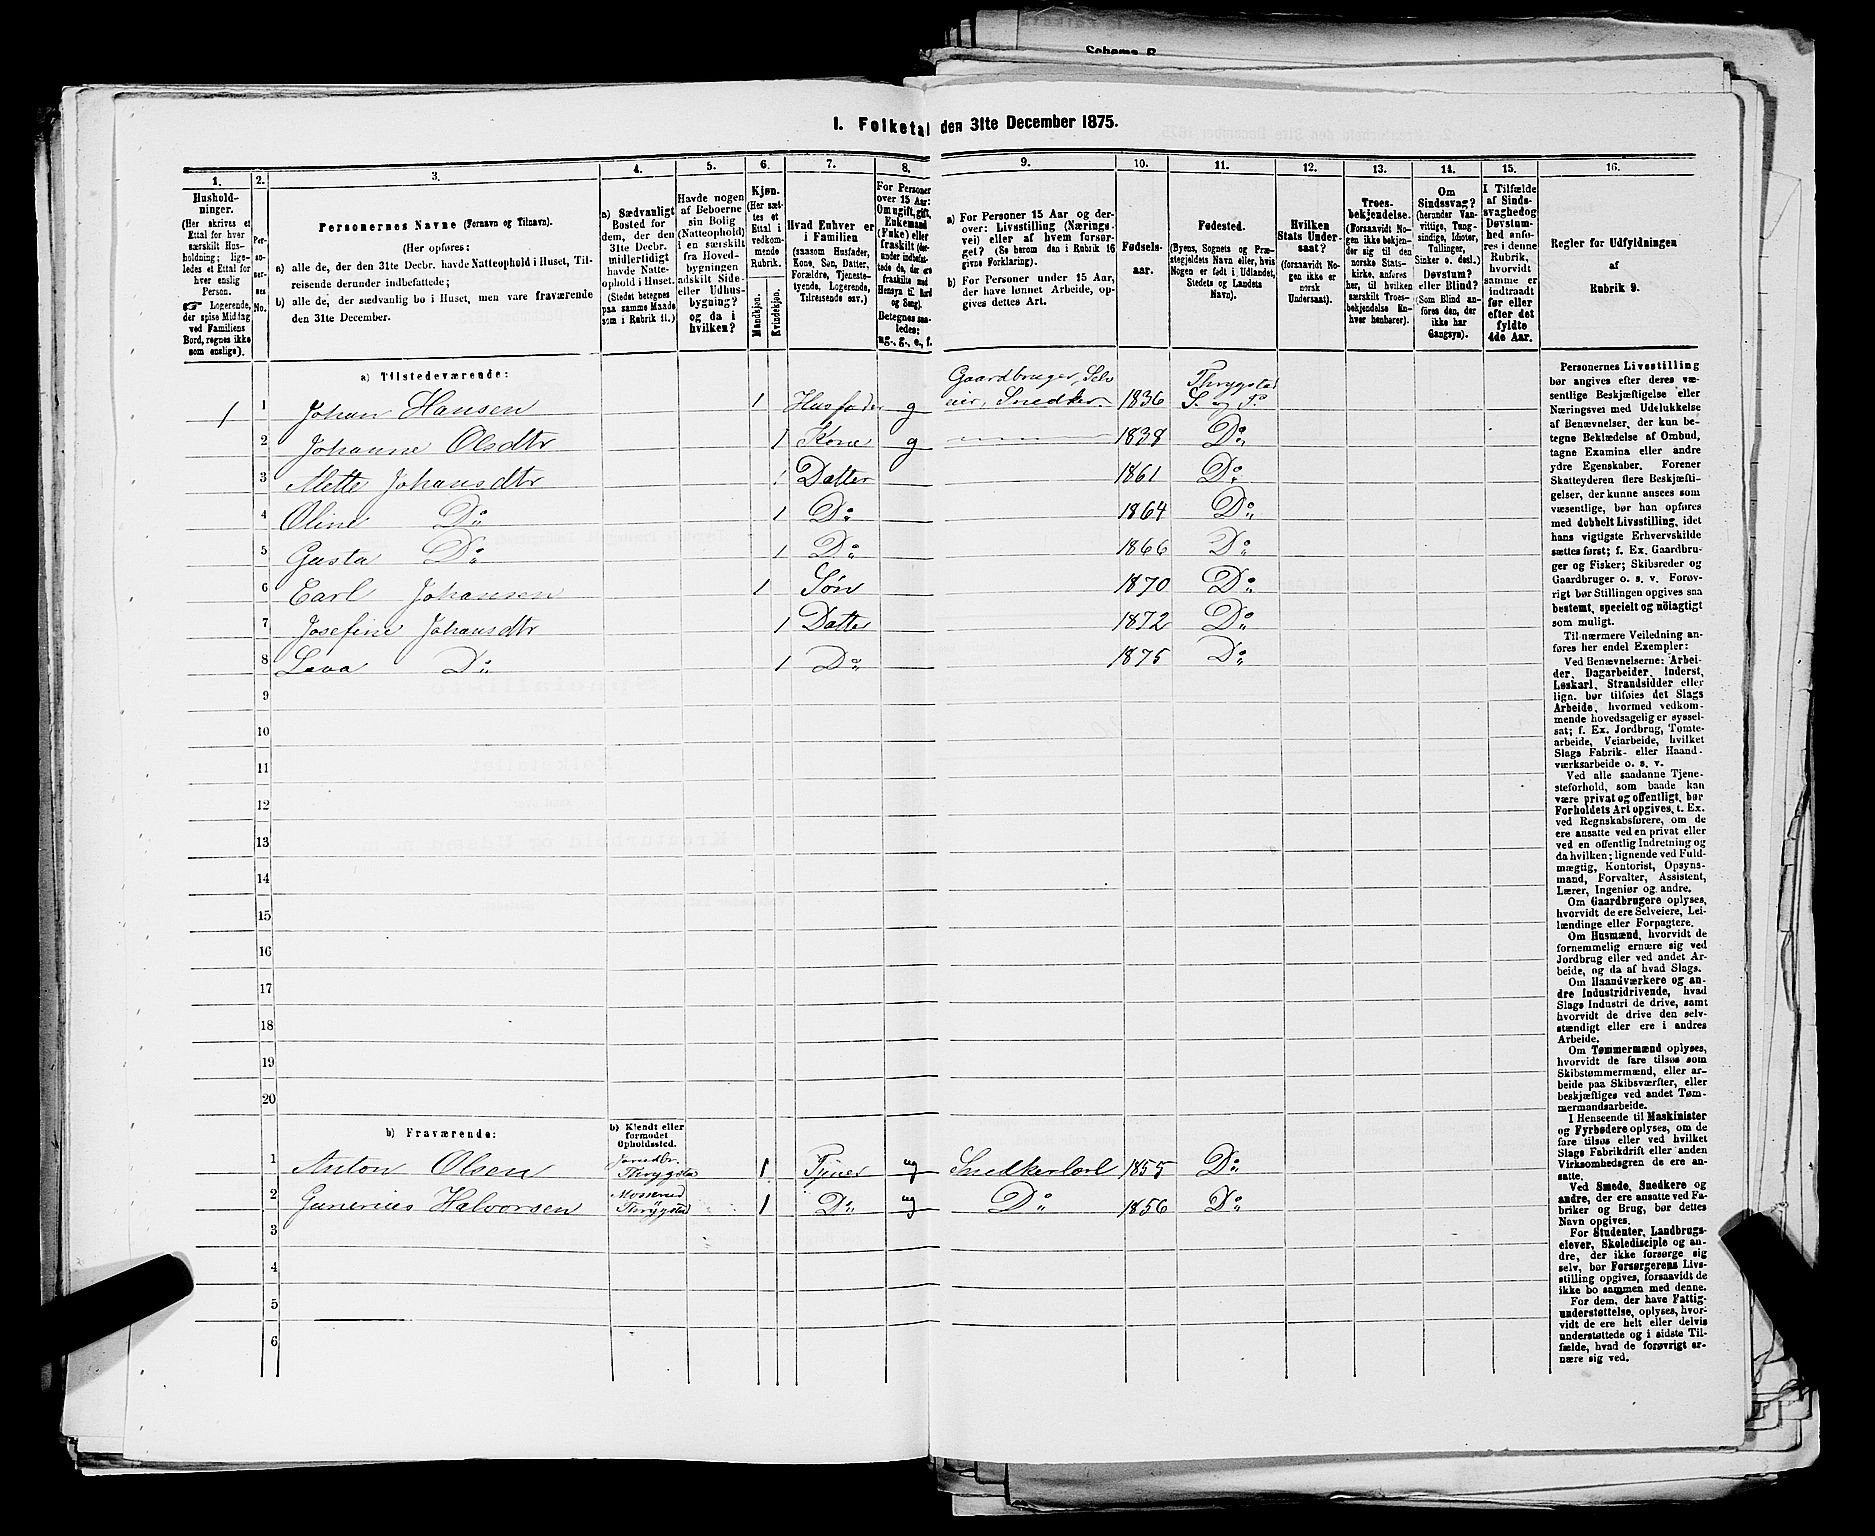 Schema B
I. Folketal den 31te December 1875.
1. 2. 3. 4. 5. 6. 7. 8. 9. 10. 11. 12. 13. 14. 15. 16.
Hushold-
ninger.
(Her skrives et
Ettal for hver
særskilt Hus-
holdning; lige-
ledes et Ettal for
hver enslig
Person.
☞ Logerende,
der spise Middag
ved Familiens
Bord, regnes ikke
som enslige).
Per-
so-
ner-
nes
No.
Personernes Navne (Fornavn og Tilnavn).
(Her opføres:
a) alle de, der den 31te Decbr. havde Natteophold i Huset, Til-
reisende derunder indbefattede;
b) alle de, der sædvanlig bo i Huset, men vare fraværende
den 31te December.
a) Sædvanligt
Bosted for
dem, der den
31te Decbr.
midlertidigt
havde Natte-
ophold i Huset.
(Stedet betegnes
paa samme Maade
som i Rubrik 11.)
Havde nogen
af Beboerne
sin Bolig
(Natteophold)
i en særskilt
fra Hoved-
bygningen
adskilt Side
eller Udhus-
bygning?
og da i
hvilken?
Kjøn.
(Her sæt-
tes et
Ettal i
vedkom-
mende
Rubrik.
Mandkjøn.
Kvindekjøn.
Hvad Enhver er
i Familien
(saasom Husfader,
Kone, Søn, Datter,
Forældre, Tjeneste-
tyende, Logerende,
Tilreisende osv.)
For Personer
over 15 Aar:
Om ugift, gift,
Enkemand
(Enke) eller
fraskilt (der-
under indbefat-
tede de, der ere
fraskilte med
Hensyn til Bord
og Seng).
Betegnes saa-
ledes:
ug., g., e., f.
a) For Personer 15 Aar og der-
over: Livsstilling (Nærings-
vei) eller af hvem forsør-
get? (Se herom den i Rubrik 16
givne Forklaring).
b) For Personer under 15 Aar,
der have lønnet Arbeide, op-
gives dettes Art.
Fødsels-
aar.
Fødested.
(Byens, Sognets og Præ-
stegjeldets Navn eller, hvis
Nogen er født i Udlandet,
Stedets og Landets
Navn).
Hvilken
Stats Under-
saat?
(forsaavidt No-
gen ikke er
norsk
Undersaat).
Troes-
bekjendelse.
(Forsaavidt No-
gen ikke bekjen-
der sig til den
norske Stats-
kirke, anføres
her, til hvilken
særskilt Troes-
bekjendelse En-
hver henhører).
Om
Sindssvag?
(herunder Van-
vittige, Tung-
sindige, Idioter,
Tullinger,
Sinker o. desl.)
Døvstum?
eller Blind?
(Som Blind an-
føres den, der
ikke har
Gangsyn).
I Tilfælde
af Sinds-
svaghed og
Døvstum-
hed anfø-
res i denne
Rubrik,
hvorvidt
samme er
indtraadt
før eller
efter det
fyldte
4de Aar.
Regler for Udfyldningen
af
Rubrik 9.
a) Tilstedeværende:
1 1 Johan Hansen 1 Husfader g Gaardbruger, Selv
eier, Snedker. 1836 Thrygstad
S. og P.
2 Johanne Olsdtr 1 Kone g 1838 Do
3 Mette Johansdtr 1 Datter 1861 Do
4 Oline Do 1 Do 1864 Do
5 Gusta Do 1 Do 1866 Do
6 Carl Johansen 1 Søn 1870 Do
7 Josefine Johansdtr 1 Datter 1872 Do
8 Do 1 Do 1875 Do
9
10
11
12
13
14
15
16
17
18
19
20
b) Fraværende:
b) Kjendt eller
formodet
Opholdssted.
1 Anton Olsen Thrygstad 1 Tjener ug Snedkerlærl 1855 Do
2 Gunerius Halvorsen Thrygstad 1 Do ug Do 1856 Do
3
4
5
6
Personernes Livsstilling
bør angives efter deres væ-
sentlige Beskjæftigelse eller
Næringsvei med Udelukkelse
af Benævnelser, der kun be-
tegne Beklædelse af Ombud,
tagne Examina eller andre
ydre Egenskaber. Forener
Skatteyderen flere Beskjæfti-
gelser, der kunne ansees som
væsentlige, bør han opføres
med dobbelt Livsstilling, idet
hans vigtigste Erhvervskilde
sættes først; f. Ex. Gaardbru-
ger og Fisker; Skibsreder og
Gaardbruger o. s. v. Forøv-
rigt bør Stillingen opgives saa
bestemt, specielt og nøiagtigt
som muligt.
Til nærmere Veiledning an-
føres her endel Exempler:
Ved Benævnelserne: Arbei-
der, Dagarbeider, Inderst,
Løskarl, Strandsidder eller
lign. bør tilføies det Slags
Arbeide, hvormed vedkom-
mende hovedsagelig er syssel-
sat; f. Ex. Jordbrug, Tømte-
arbeide, Veiarbeide, hvilket
Slags Fabrik- eller Haand-
værksarbeide o. s. v.
Ved alle saadanne Tjene-
steforhold, som baade kan
være privat og offentligt, bør
Forholdets Art opgives, t. Ex.
ved Regnskabsførere, om de
ere ansatte ved en privat eller
ved en offentlig Indretning og
da hvilken; lignende ved Fuld-
mægtig, Kontorist, Opsyns-
mand, Forvalter, Assistent,
Lærer, Ingeniør og andre.
Om Gaardbrugere oplyses,
hvorvidt de ere Selveiere, Lei-
lændinge eller Forpagtere.
Om Husmænd, hvorvidt de
fornemmelig ernære sig ved
Jordbrug eller ved andet Ar-
beide, og da af hvad Slags.
Om Haandværkere og an-
dre Industridrivende, hvad
Slags Industri de drive, samt
hvorvidt de drive den selv-
stændigt eller ere i andres
Arbeide.
Om Tømmermænd oplyses,
hvorvidt de fare tilsøs som
Skibstømmermænd, eller ar-
beide paa Skibsværfter, eller
beskjæftiges ved andet Tøm-
mermandsarbeide.
I Henseende til Maskinister
og Fyrbødere oplyses, om de
fare tilsøs eller ved hvilket
Slags Fabrikdrift eller anden
Virksomhedsgren de ere an-
satte.
Ved Smede, Snedkere og
andre, der ere ansatte ved Fa-
briker og Brug, bør dettes
Navn opgives.
For Studenter, Landbrugs-
elever, Skoledisciple og an-
dre, der ikke forsørge sig
selv, bør Forsørgerens Livs-
stilling opgives, forsaavidt de
ikke bo sammen med denne.
For dem, der have Fattig-
understøttelse, oplyses, hvor-
vidt de ere helt eller delvis
understøttede og i sidste Til-
fælde, hvad de forøvrigt er-
nære sig ved.